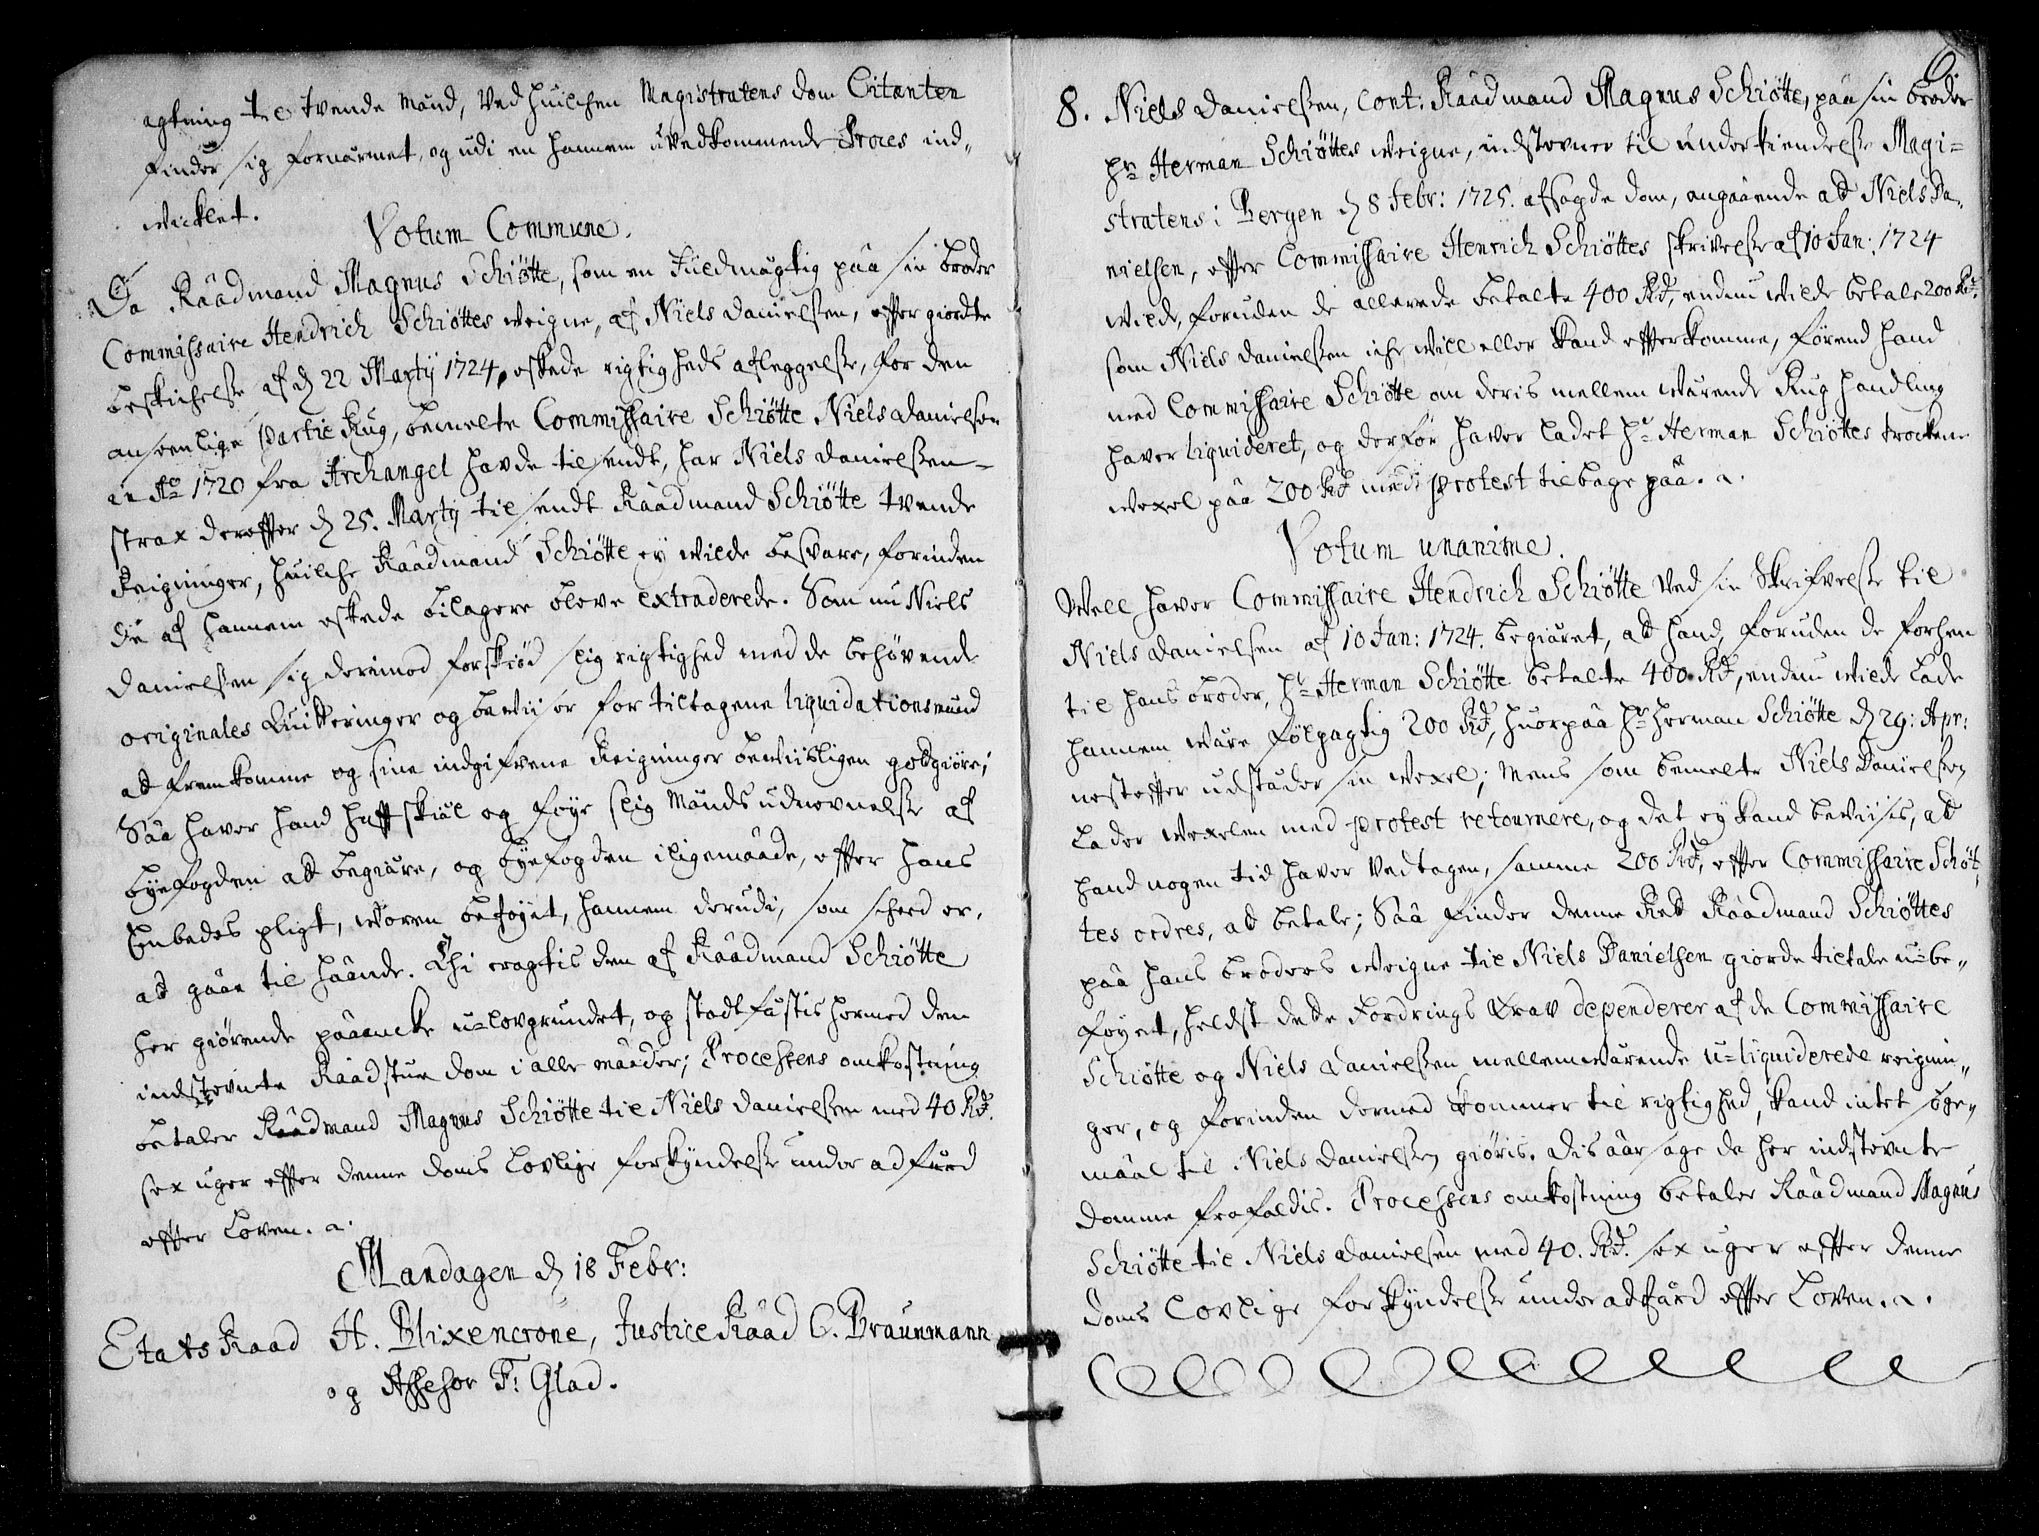 agtning til tvende Mænd, ved huilchen Magistratens dom Citanten
finder sig fornærmet, og udi en hannem uvedkommende Proces ind-
wicklet.
Votum Commune.
Da Raadmand Magnus Schiøtte, som en Fuldmægtig paa sin broder
Commissaire Hendrich Schiøttes weigne, af Niels Danielssen, effter giordte
beskichelse af d 22 Martij 1724, eskede rigtigheds afleggelse, for den
anseenlige Partie Rug, bemelte Commissaire Schiøtte Niels Danielsen
in Ao 1720 fra Archangel hafde tilsendt, har Niels Danielssen
strax dereffter d 25. Martij tilsendt Raadmand Schiøtte tvende
Reigninger, huilche Raadmand Schiøtte ey wilde besvare, forinden
de af hannem eskede bilager bleve extraderede. Som nu Niels
Danielssen sig derimod forskiød slig rigtighed med de behøvende
originales Quitteringer og beviiser for tiltagene liquidationsmænd
at fremkomme og sine indgifvene Reigninger beviisligen godtgiøre;
Saa haver hand hafft skiæl og føye slig Mænds udnevnelse af
byefogden at begiære, og byefogden iligemaade, effter hans
Embedes pligt, woren beføyet, hannem derudi, som scheed er,
at gaae til haande. Thi eragtis den af Raadmand Schiøtte
her giørende paaancke u-lovgrundet, og stadfæstis hermed den
indstevnte Raadstue dom i alle maader; Processens omkostning
betaler Raadmand Magnus Schiøtte til Niels Danielssen med 40 Rd.
sex uger effter denne doms lovlige forkyndelse under adfærd
effter Loven.
Mandagen d 18 Febr:
Etats Raad H. Blixencrone, Justice Raad C. Braunmann
og Assessor F: Glad.
6
8. Niels Danielssen, Cont: Raadmand Magnus Schiøtte, paa sin broder
Hr Herman Schiøttes weigne, indstevner til underkiendelse Magi-
stratens i Bergen d 8 Febr: 1725. afsagde dom, angaaende at Niels Da-
nielsen, effter Commissaire Henrich Schiøttes skrivelse af 10 Jan: 1724
wilde, foruden de allerede betalte 400 Rd, endnu wilde betale 200 Rd.
som Niels Danielssen iche will eller kand effterkomme, førend hand
med Commissaire Schiøtte om deris mellem wærende Rug handling
haver liquideret, og derfor haver ladet Hr Herman Schiøttes trochene
wexel paa 200 Rd med protest tilbage gaa.
Votum unanime.
Well haver Commissaire Hendrich Schiøtte ved sin Skrifvelse til
Niels Danielsen af 10 Jan: 1724. begiæret, at hand, foruden de forhen
til hans broder, Hr Herman Schiøtte betalte 400 Rd, endnu wilde lade
hannem være følgagtig 200 Rd, huorpaa Hr Herman Schiøtte d 29: Apr:
nesteffter udstæder sin wexel; Mens som bemelte Niels Danielsen
lader wexelen med protest retournere, og det ey kand beviises, at
hand nogen tid haver vedtagen, samme 200 Rd, effter Commissaire Schiøt-
tes ordres, at betale; Saa finder denne Ret Raadmand Schiøttes
paa hans broders weigne til Niels Danielsen giorde tiltale u-be-
føyet, heldst dette Fordrings Krav dependerer af de Commissaire
Schiøtte og Niels Danielssen mellemwærende u-liquiderede reignin-
ger, og forinden dermed kommer til rigtighed, kand intet søge-
maal til Niels Danielssen giøris. Disaarsage de her indstevnte
domme frafaldis. Processens omkostning betaler Raadmand Magnus
Schiøtte til Niels Danielsen med 40. Rd. sex uger effter denne
doms lovlige forkyndelse under adfærd effter Loven.